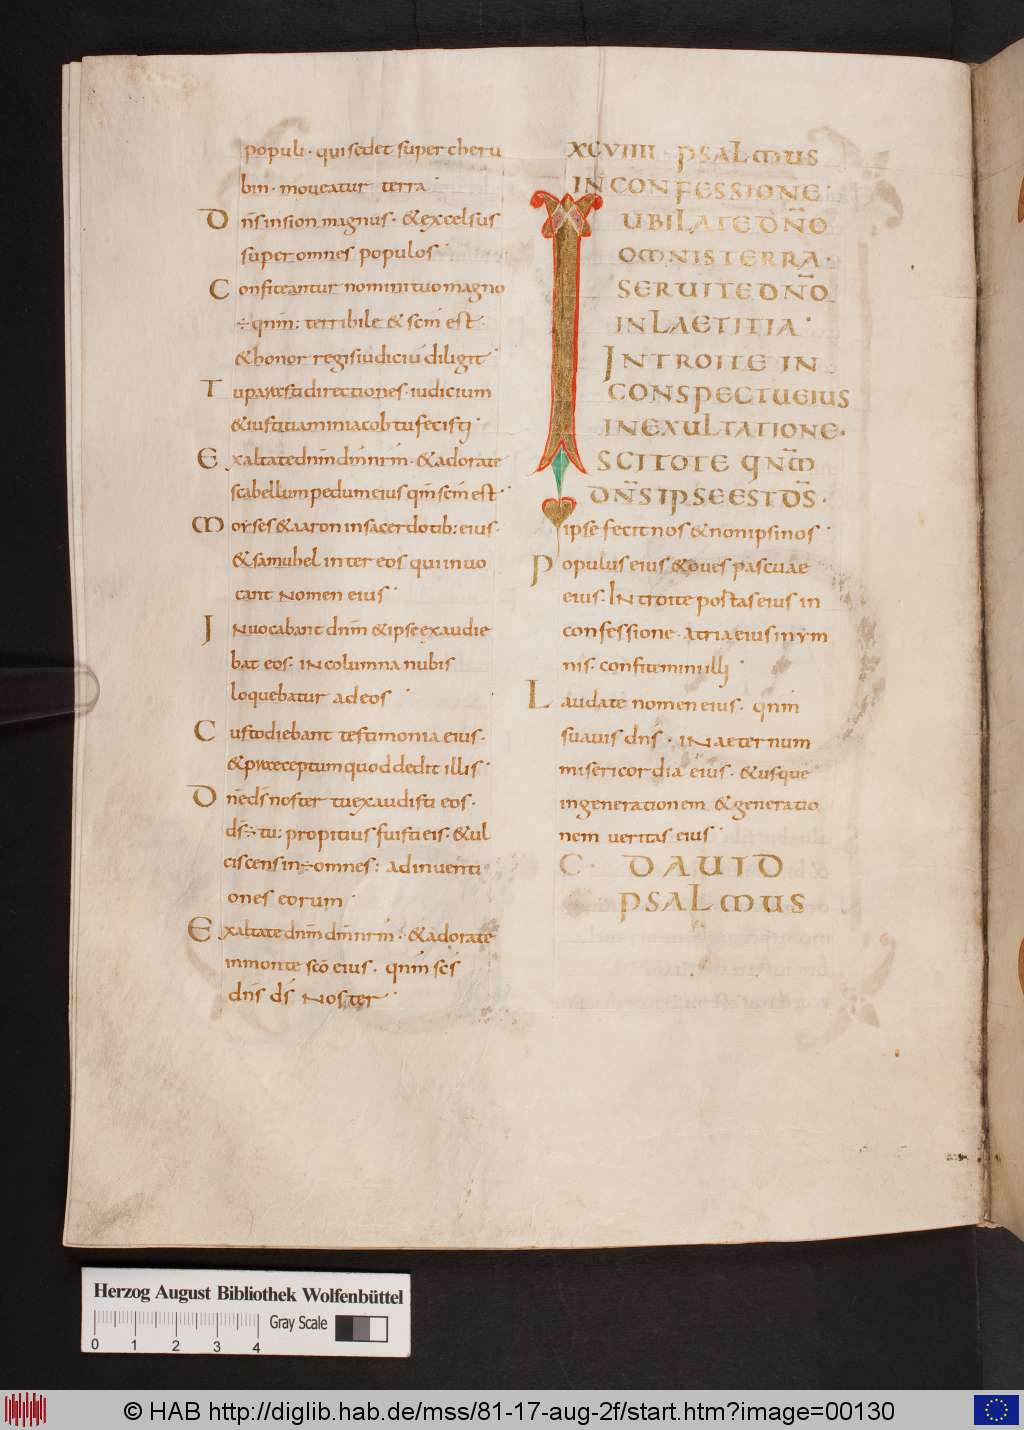 populi · qui sedet super cheru
bin · moveatur terra ·
Dn̄s in sion magnus · & excelsus
super omnes populos ·
Confiteantur nomini tuo magno
÷ qn̄m : terribile & sc̄m est ·
& honor regis iudiciū diligit ·
Tu parasti directiones · iudicium
& iustitiam in iacob tu fecisti ·
Exaltate dn̄m dm̄ nr̄m · & adorate
scabellum pedum eius qm̄ sc̄m est ·
Moyses & aaron in sacerdotib: eius ·
& samuhel inter eos qui inuo
cant nomen eius ·
Inuocabant dn̄m & ipse exaudie
bat eos · in columna nubis
loquebatur ad eos ·
Custodiebant testimonia eius ·
& praeceptum quod dedit illis ·
Dn̄e ds̄ noster tu exaudisti eos ·
ds̄ ÷ tu : propitius fuisti eis · & ul
ciscens in ÷ omnes : adinuenti
ones eorum ·
Exaltate dn̄m dm̄ nr̄m · & adorate
in monte sc̄o eius · qn̄m sc̄s
dn̄s ds̄ noster ·
XCVIIII · PSALMUS
IN CONFESSIONE ·
IUBILATE DN̄O
OMNIS TERRA ·
SERUITE DN̄O
IN LAETITIA ·
INTROITE IN
CONSPECTU EIUS
IN EXULTATIONE ·
SCITOTE QNM̄
DN̄S IPSE EST DS̄ ·
ipse fecit nos & non ipsi nos ·
Populus eius & oues pascuae
eius · Introite portas eius in
confessione · atria eius in ym
nis · confitemini illi ·
Laudate nomen eius · qn̄m
suauis dn̄s · in aeternum
misericordia eius · & usque
in generationem & generatio
nem ueritas eius ·
C · DAUID
PSALMUS
Herzog August Bibliothek Wolfenbüttel
Gray Scale
0 1 2 3 4
© HAB http://diglib.hab.de/mss/81-17-aug-2f/start.htm?image=00130